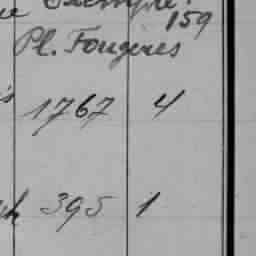 159
Pl. Fougères
1767 4
395 1